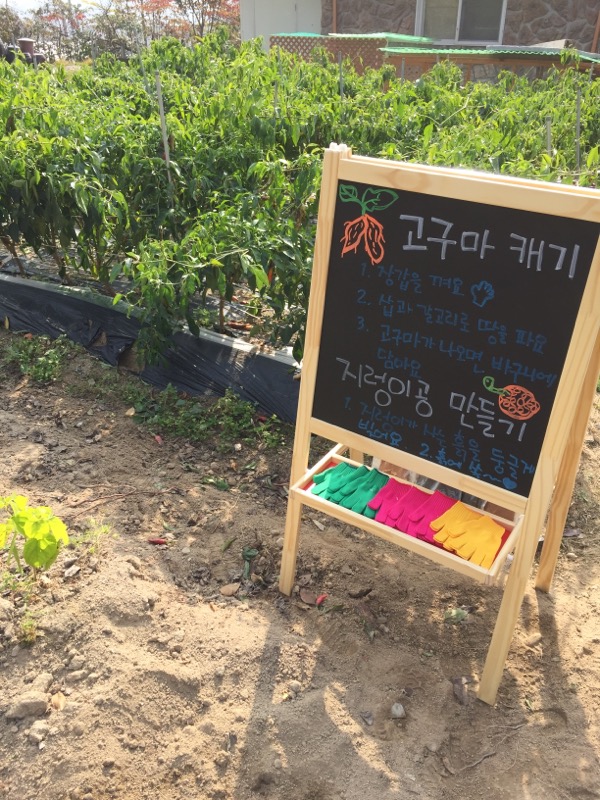 고구마 캐기
1. 장갑을 껴요
2. 삽과 갈고리로 땅을 파요
3. 고구마가 나오면 바구니에
담아요
지렁이공 만들기
1. 지렁이가 사는 흙을 둥글게
빚어요 2. 흙에 쏙~